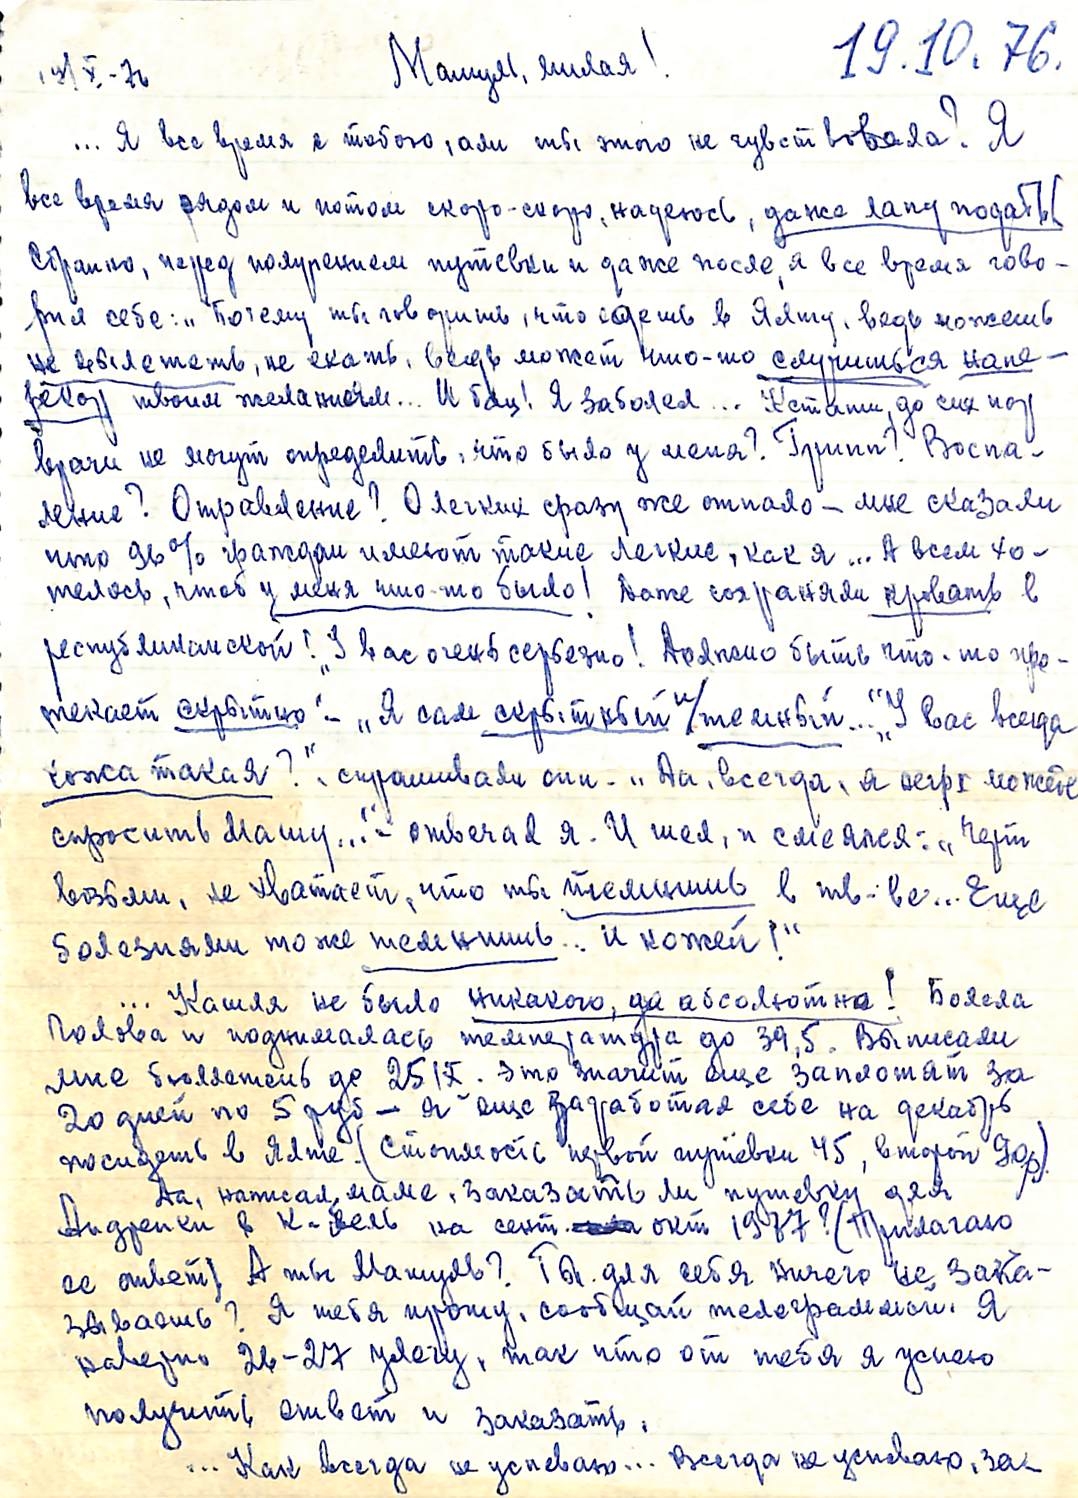 19/X-76 Машуль, милая! 19.10.76.
... Я все время с тобою, али ты этого не чувствовала? Я
все время рядом и потом скоро-скоро, надеюсь, даже лапу подать!
Странно, перед получением путевки и даже после, я все время гово-
рил себе: „Почему ты говоришь, что едешь в Ялту, ведь можешь
не вылететь, не ехать, ведь может что-то случиться напе-
рекор твоим желаниям... И бац! Я заболел... Кстати, до сих пор
врачи не могут определить, что было у меня? Грипп? Воспа-
ление? Отравление? О легких сразу же отпало – мне сказали
что 96% граждан имеют такие легкие, как я... А всем хо-
телось, чтоб у меня что-то было! Даже сохраняли кровать в
республиканской! „У вас очень серьезно! Должно быть что-то про-
текает скрытно“ – „Я сам скрытный и темный...“ „У вас всегда
кожа такая?“, спрашивали они – „Да, всегда, я негр, можете
спросить Машу...“ – отвечал я. И шел, и смеялся: „Черт
возьми, не хватает, что ты темнишь в тв-ве... Еще
болезнями тоже темнишь... и кожей!“
... Кашля не было никакого, да абсолютно! Болела
голова и поднималась температура до 39,5. Выписали
мне бюллетень до 25 IX. Это значит еще заплотят за
20 дней по 5 руб – я еще заработал себе на декабрь
посидеть в Ялте. (Стоимость первой путёвки 45, второй 90р)
Да, написал маме, заказать ли путевку для
Андрейки в К-бель на сент. окт 1977? (Прилагаю
ее ответ) А ты Машуль? Ты для себя ничего не зака-
зываешь? Я тебя прошу, сообщай телеграммой. Я
наверно 26-27 улечу, так что от тебя я успею
получить ответ и заказать.
... Как всегда не успеваю... Всегда не успеваю, за-